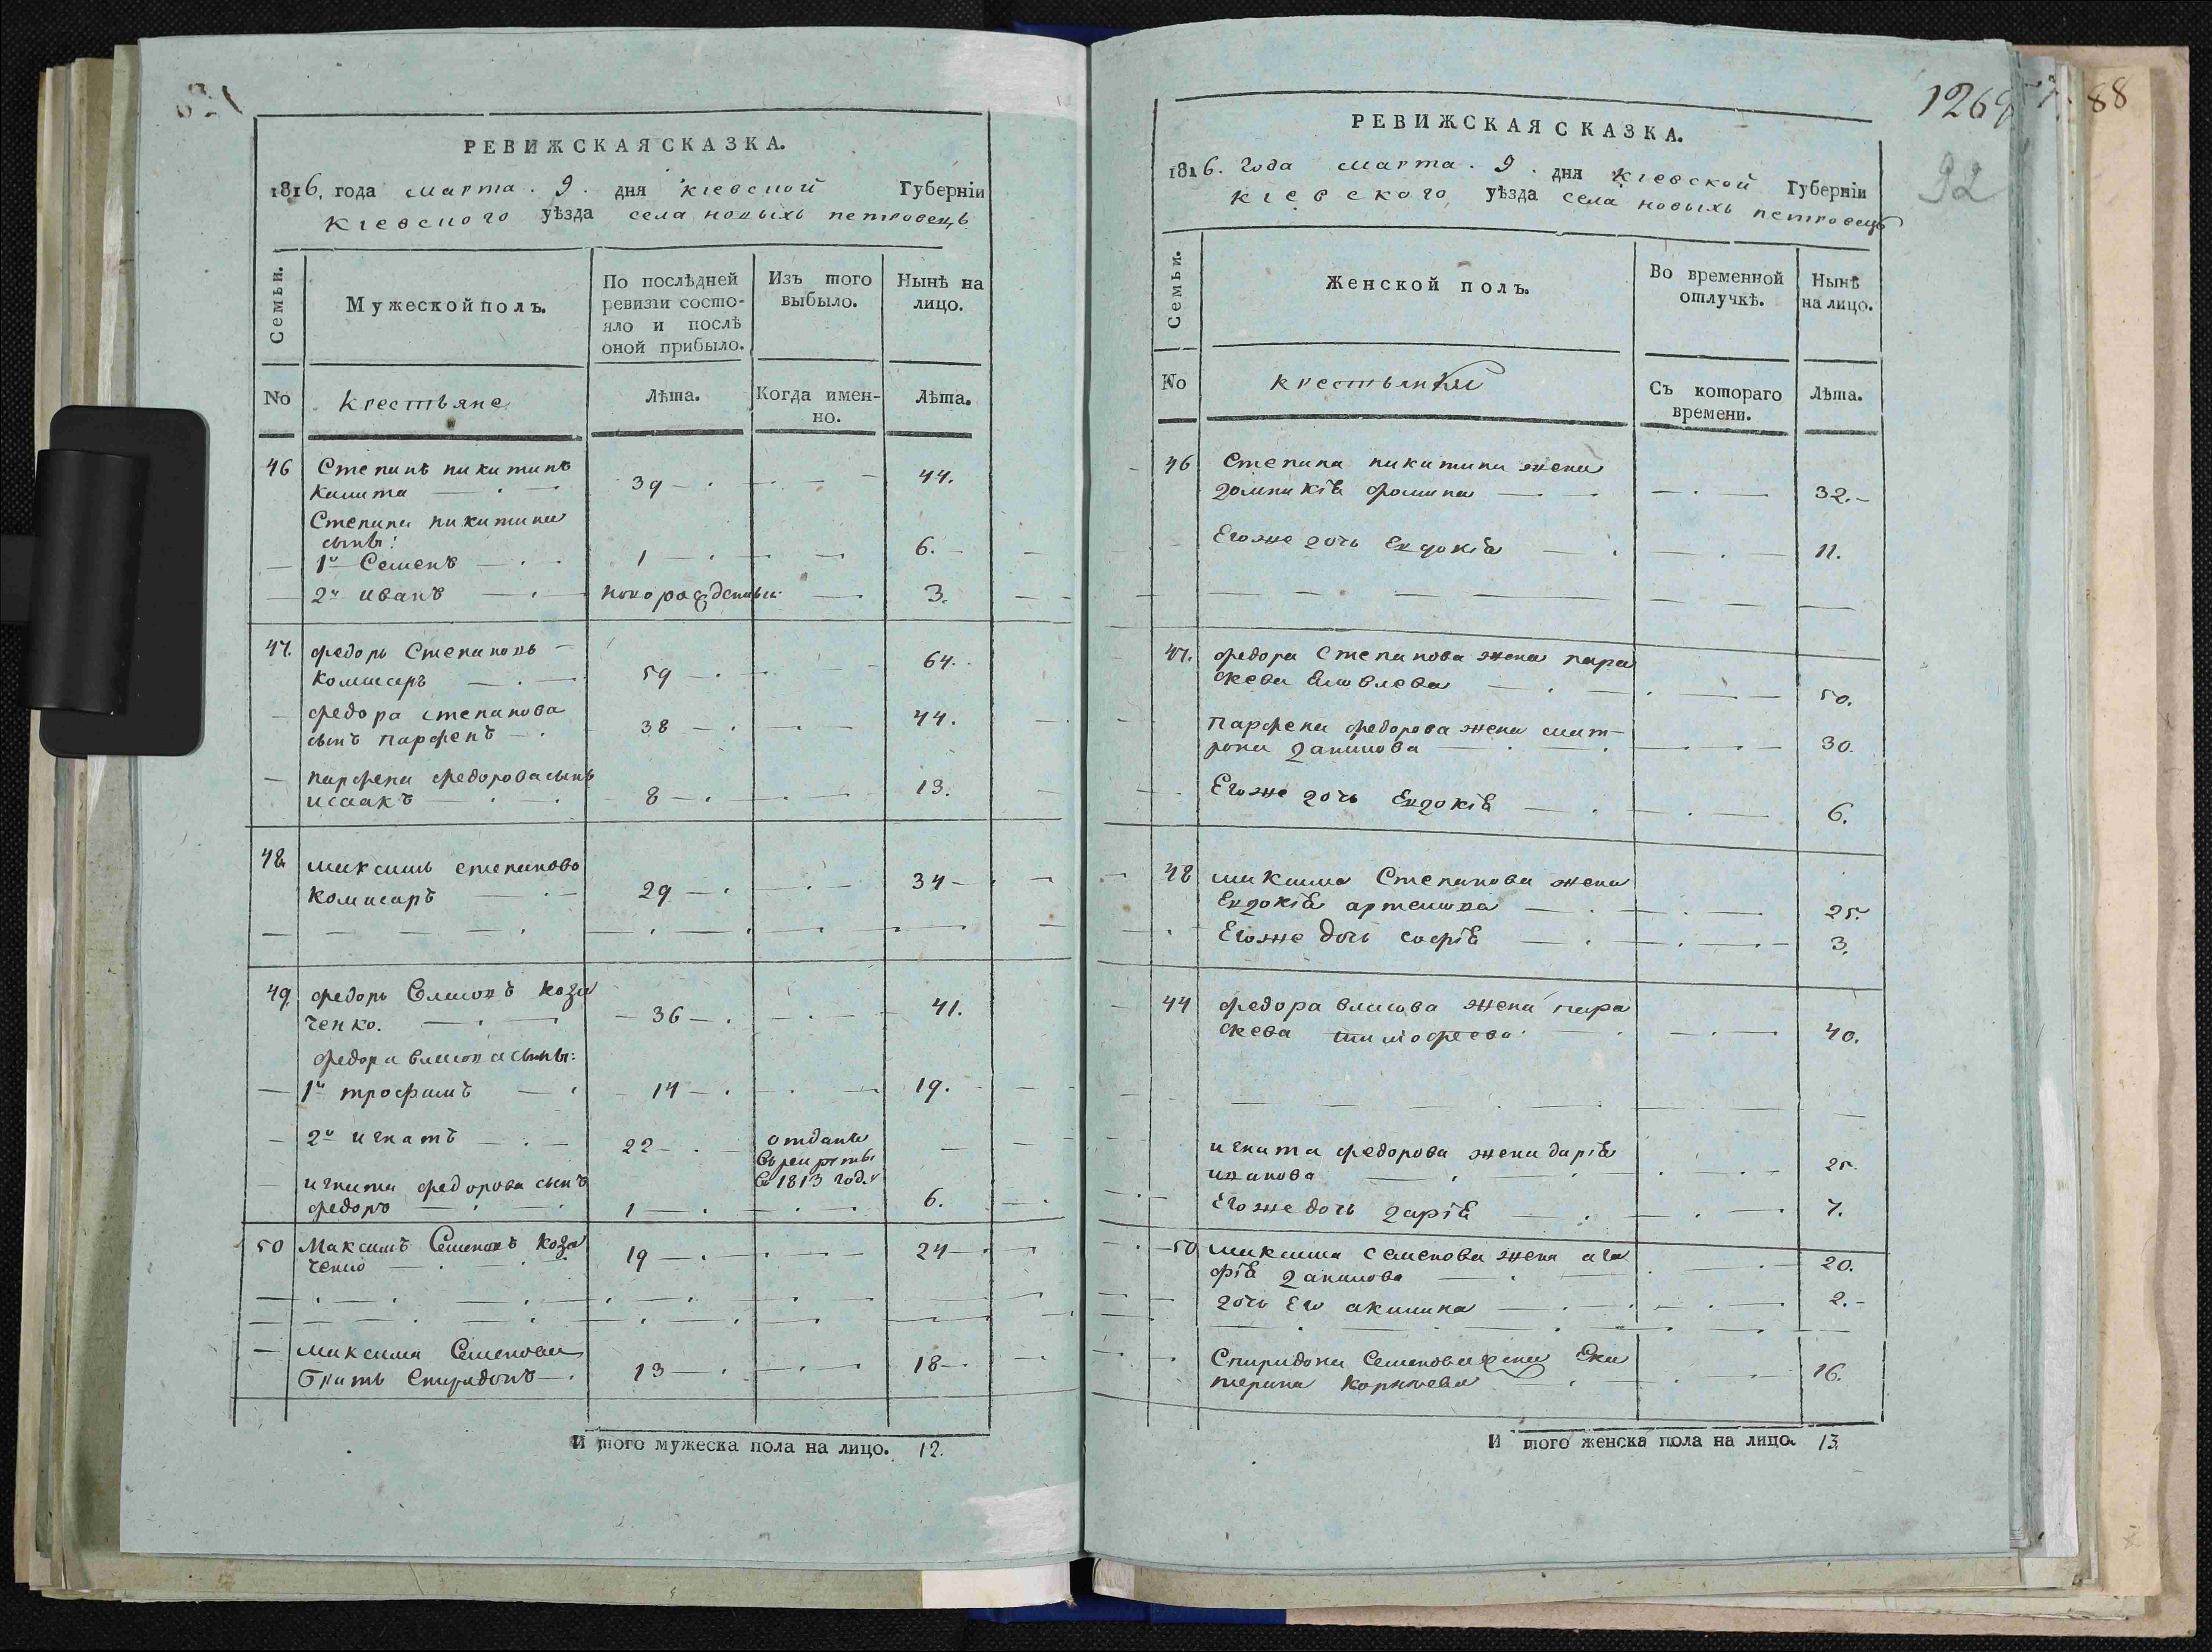 РЕВИЖСКАЯ СКАЗКА.
1816. года марта. 9. дня кіевской Губерніи
кіевского уѣзда села новыхъ петровецъ
Семьи.
Мужеской полъ.
По послѣдней ревизіи состо-
яло и послѣ
оной прибыло.
Изъ того
выбыло.
Нынѣ на
лицо.
No
крестьяне
Лѣта.
Когда имен-
но.
Лѣта.
46 Степанъ никитинъ
39 44.
Степана никитина
сыны:
1й Семенъ 1 6.
2й иванъ новорожденный 3.
47. федоръ Степановъ
комисаръ 59 64.
федора степанова
сынъ парфенъ 38 44.
парфена федорова сынъ
исаакъ 8 13.
48. максимъ степановъ
комисаръ 29 34
49. федоръ Власовъ коза
ченко. 36 41.
федора власова сыны:
1й трофимъ 14 19.
2й игнатъ 22 отданъ
въ рекруты
в 1813 году
игната федорова сынъ
федоръ 1 6.
50 Максимъ Семеновъ коза
ченко 19 24
максима Семенова
братъ Спиридонъ 13 18
И того мужеска пола на лицо. 12.
1269
88
92
РЕВИЖСКАЯ СКАЗКА.
1816. года марта. 9. дня кіевской Губерніи
кіевского уѣзда села новыхъ петровецъ
Семьи.
Женской полъ.
Во временной
отлучкѣ.
Нынѣ
на лицо.
No
крестьянки
Съ котораго
времени.
Лѣта.
46 Степана никитина жена
домникія фомина 32.
Егоже дочь Евдокія 11.
47. федора степанова жена пара
скева яковлева 50.
парфена федорова жена мат-
рона данилова 30.
Егоже дочь Евдокія 6.
48 максима Степанова жена
Евдокія артемова 25.
Егоже дочь софія 3.
44 федора власова жена пара
скева тимофеева 40.
игната федорова жена дарія
иванова 25.
Егоже дочь дарія 7.
50 максима семенова жена ага
фія данилова 20.
дочь Его акилина 2.
Спиридона Семенова жена Ека
терина корнѣева 16.
И того женска пола на лицо. 13.